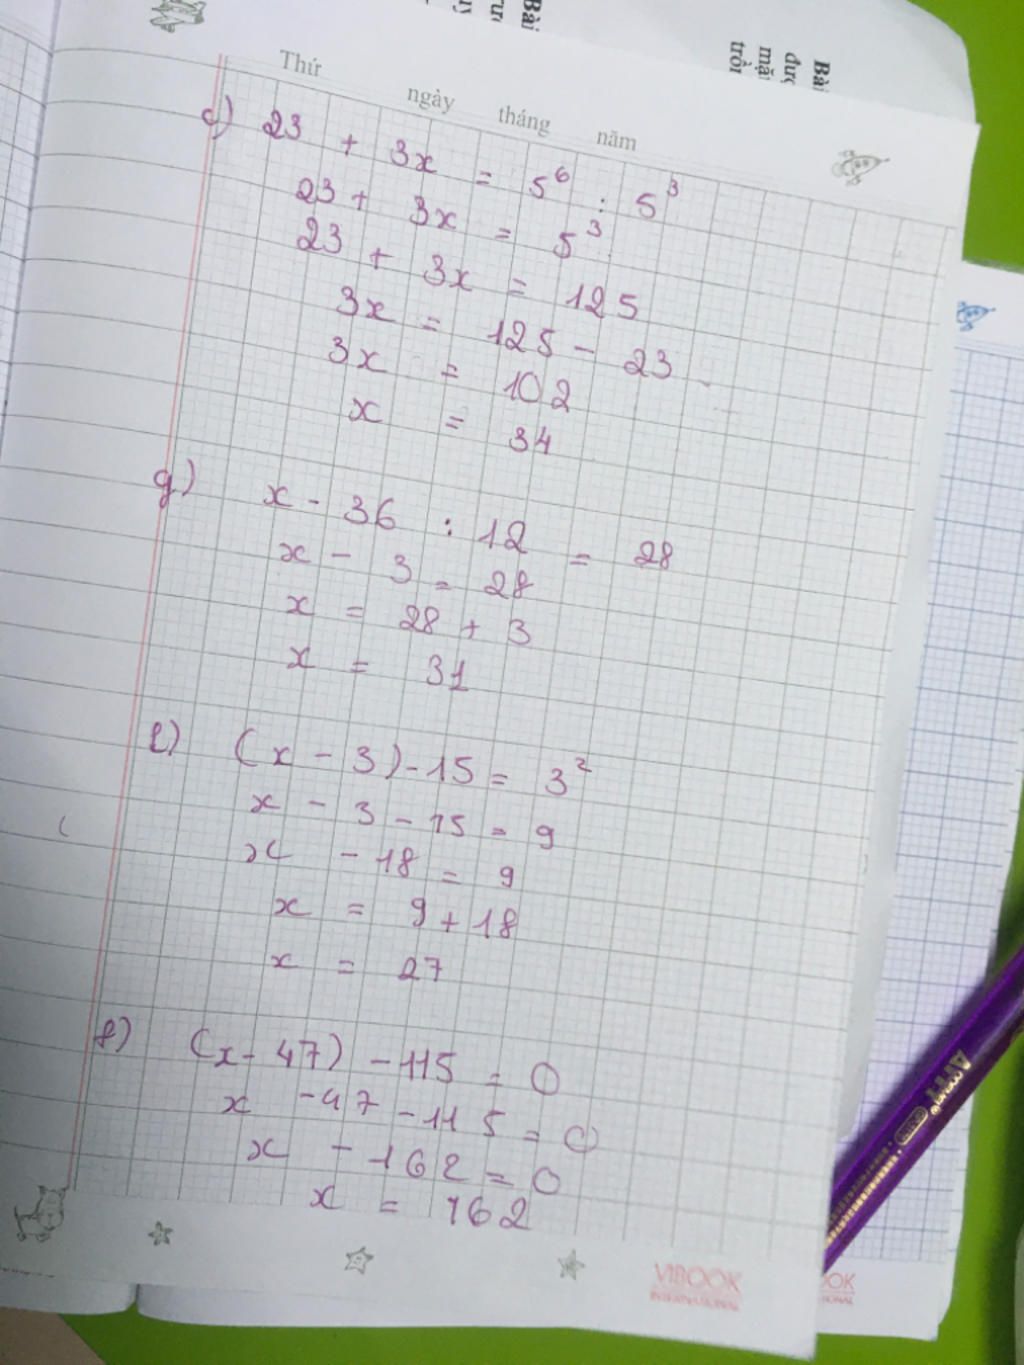 Bài
Bài
đượ
mặ
trồ
Thứ ngày tháng năm
c) 23 + 3x = 5⁶ : 5³
23 + 3x = 5³
23 + 3x = 125
3x = 125 - 23
3x = 102
x = 34
g) x - 36 : 12 = 28
x - 3 = 28
x = 28 + 3
x = 31
e) (x - 3) - 15 = 3²
x - 3 - 15 = 9
x - 18 = 9
x = 9 + 18
x = 27
f) (x - 47) - 115 = 0
x - 47 - 115 = 0
x - 162 = 0
x = 162
VIBOOK
INTERNATIONAL
OK
ONAL